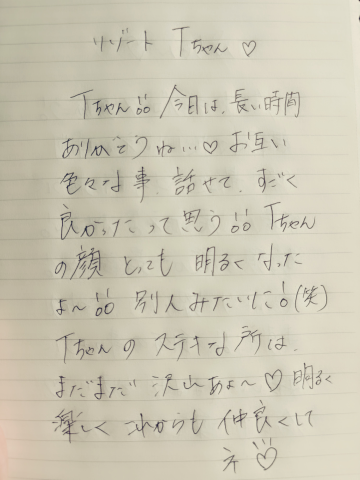 リゾート Tちゃん ♡
Tちゃん!! 今日は、長い時間
ありがとうねぃ…♡ お互い
色々な事、話せて、すごく
良かったって思う!! Tちゃん
の顔 とっても 明るくなった
よ〜!! 別人みたいに!(笑)
Tちゃんの ステキな所は、
まだまだ 沢山あるよ〜♡ 明るく
楽しく これからも 仲良くして
ネ♡